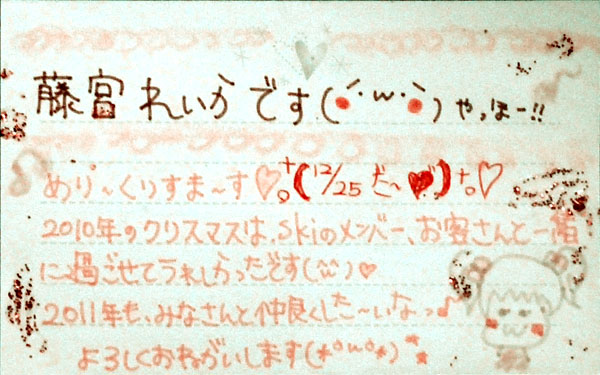 藤宮れいかです(´･ω･`)やっほー!!
めり〜くりすま〜す♡+。(12/25だ〜♥)+。♡
2010年のクリスマスは、skiのメンバー、お客さんと一緒
に過ごせてうれしかったです(^^)♡
2011年も、みなさんと仲良くした〜いなっ♪
よろしくおねがいします(*°ω°*)